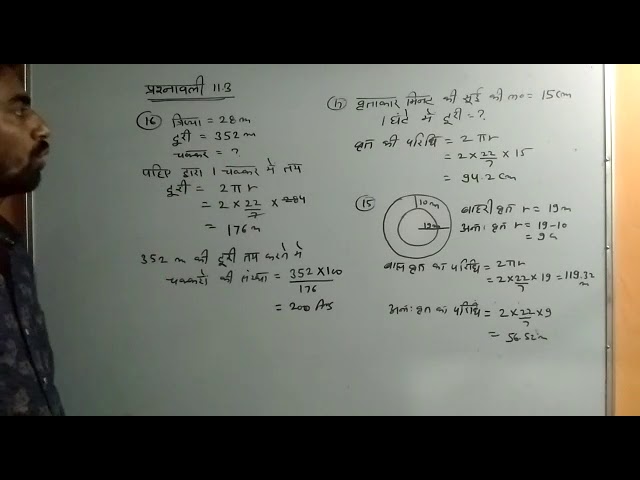 प्रश्नावली 11.3
16 त्रिज्या = 28 m
दूरी = 352 m
चक्कर = ?
पहिए द्वारा 1 चक्कर में तय
दूरी = 2πr
= 2 × 22/7 × 28
= 176 m
352 m की दूरी तय करने में
चक्करों की संख्या = 352×100/176
= 200 Ans
17 वृत्ताकार मिनट की सूई की ल० = 15 cm
1 घंटे में दूरी = ?
वृत्त की परिधि = 2πr
= 2 × 22/7 × 15
= 94.2 cm
15
10 m
19m
बाहरी वृत्त r = 19 m
अन्तः वृत्त r = 19-10
= 9
बाह्य वृत्त का परिधि = 2πr
= 2×22/7×19 = 119.32 m
अन्तः वृत्त का परिधि = 2×22/7×9
= 56.52 m